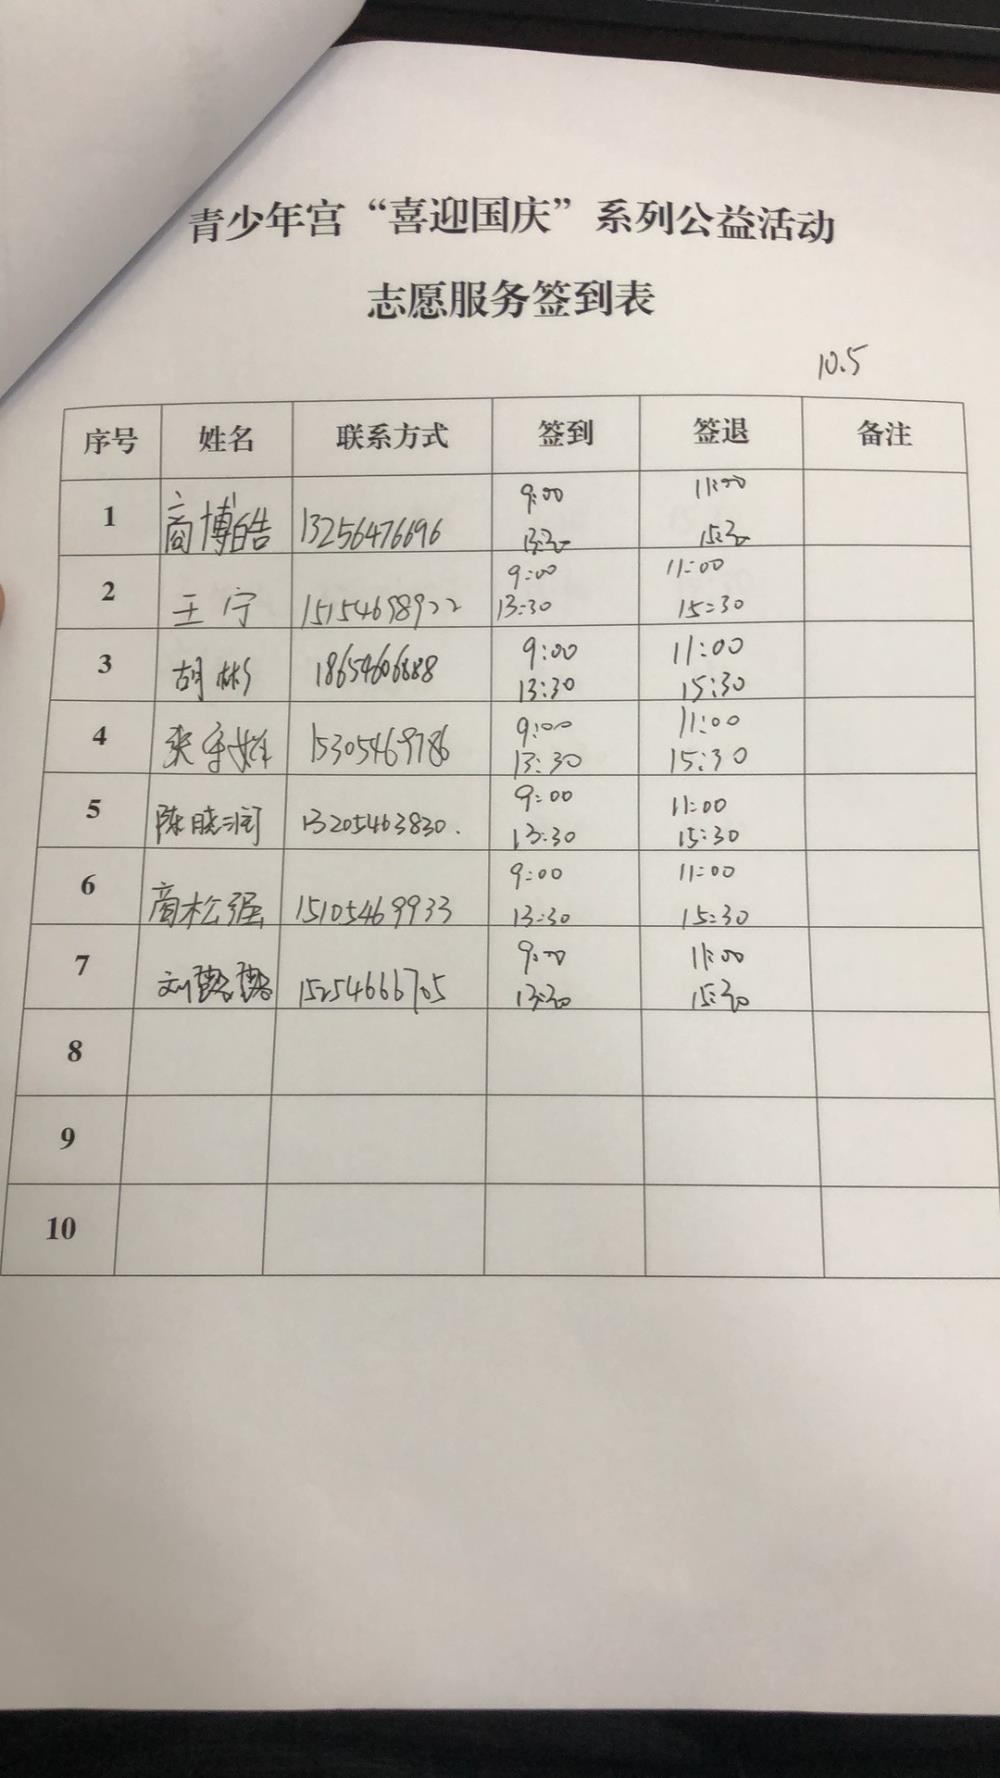 青少年宫“喜迎国庆”系列公益活动
志愿服务签到表
10.5
序号 姓名 联系方式 签到 签退 备注
9:00 11:00
1 商博皓 13256476696 13:30 15:30
9:00 11:00
2 王宁 15154698922 13:30 15:30
9:00 11:00
3 胡彬 18654606888 13:30 15:30
9:00 11:00
4 15305469786 13:30 15:30
9:00 11:00
5 陈晓润 13205463830. 13:30 15:30
9:00 11:00
6 商松强 15105469933 13:30 15:30
9:00 11:00
7 刘 15254666705 13:30 15:30
8
9
10